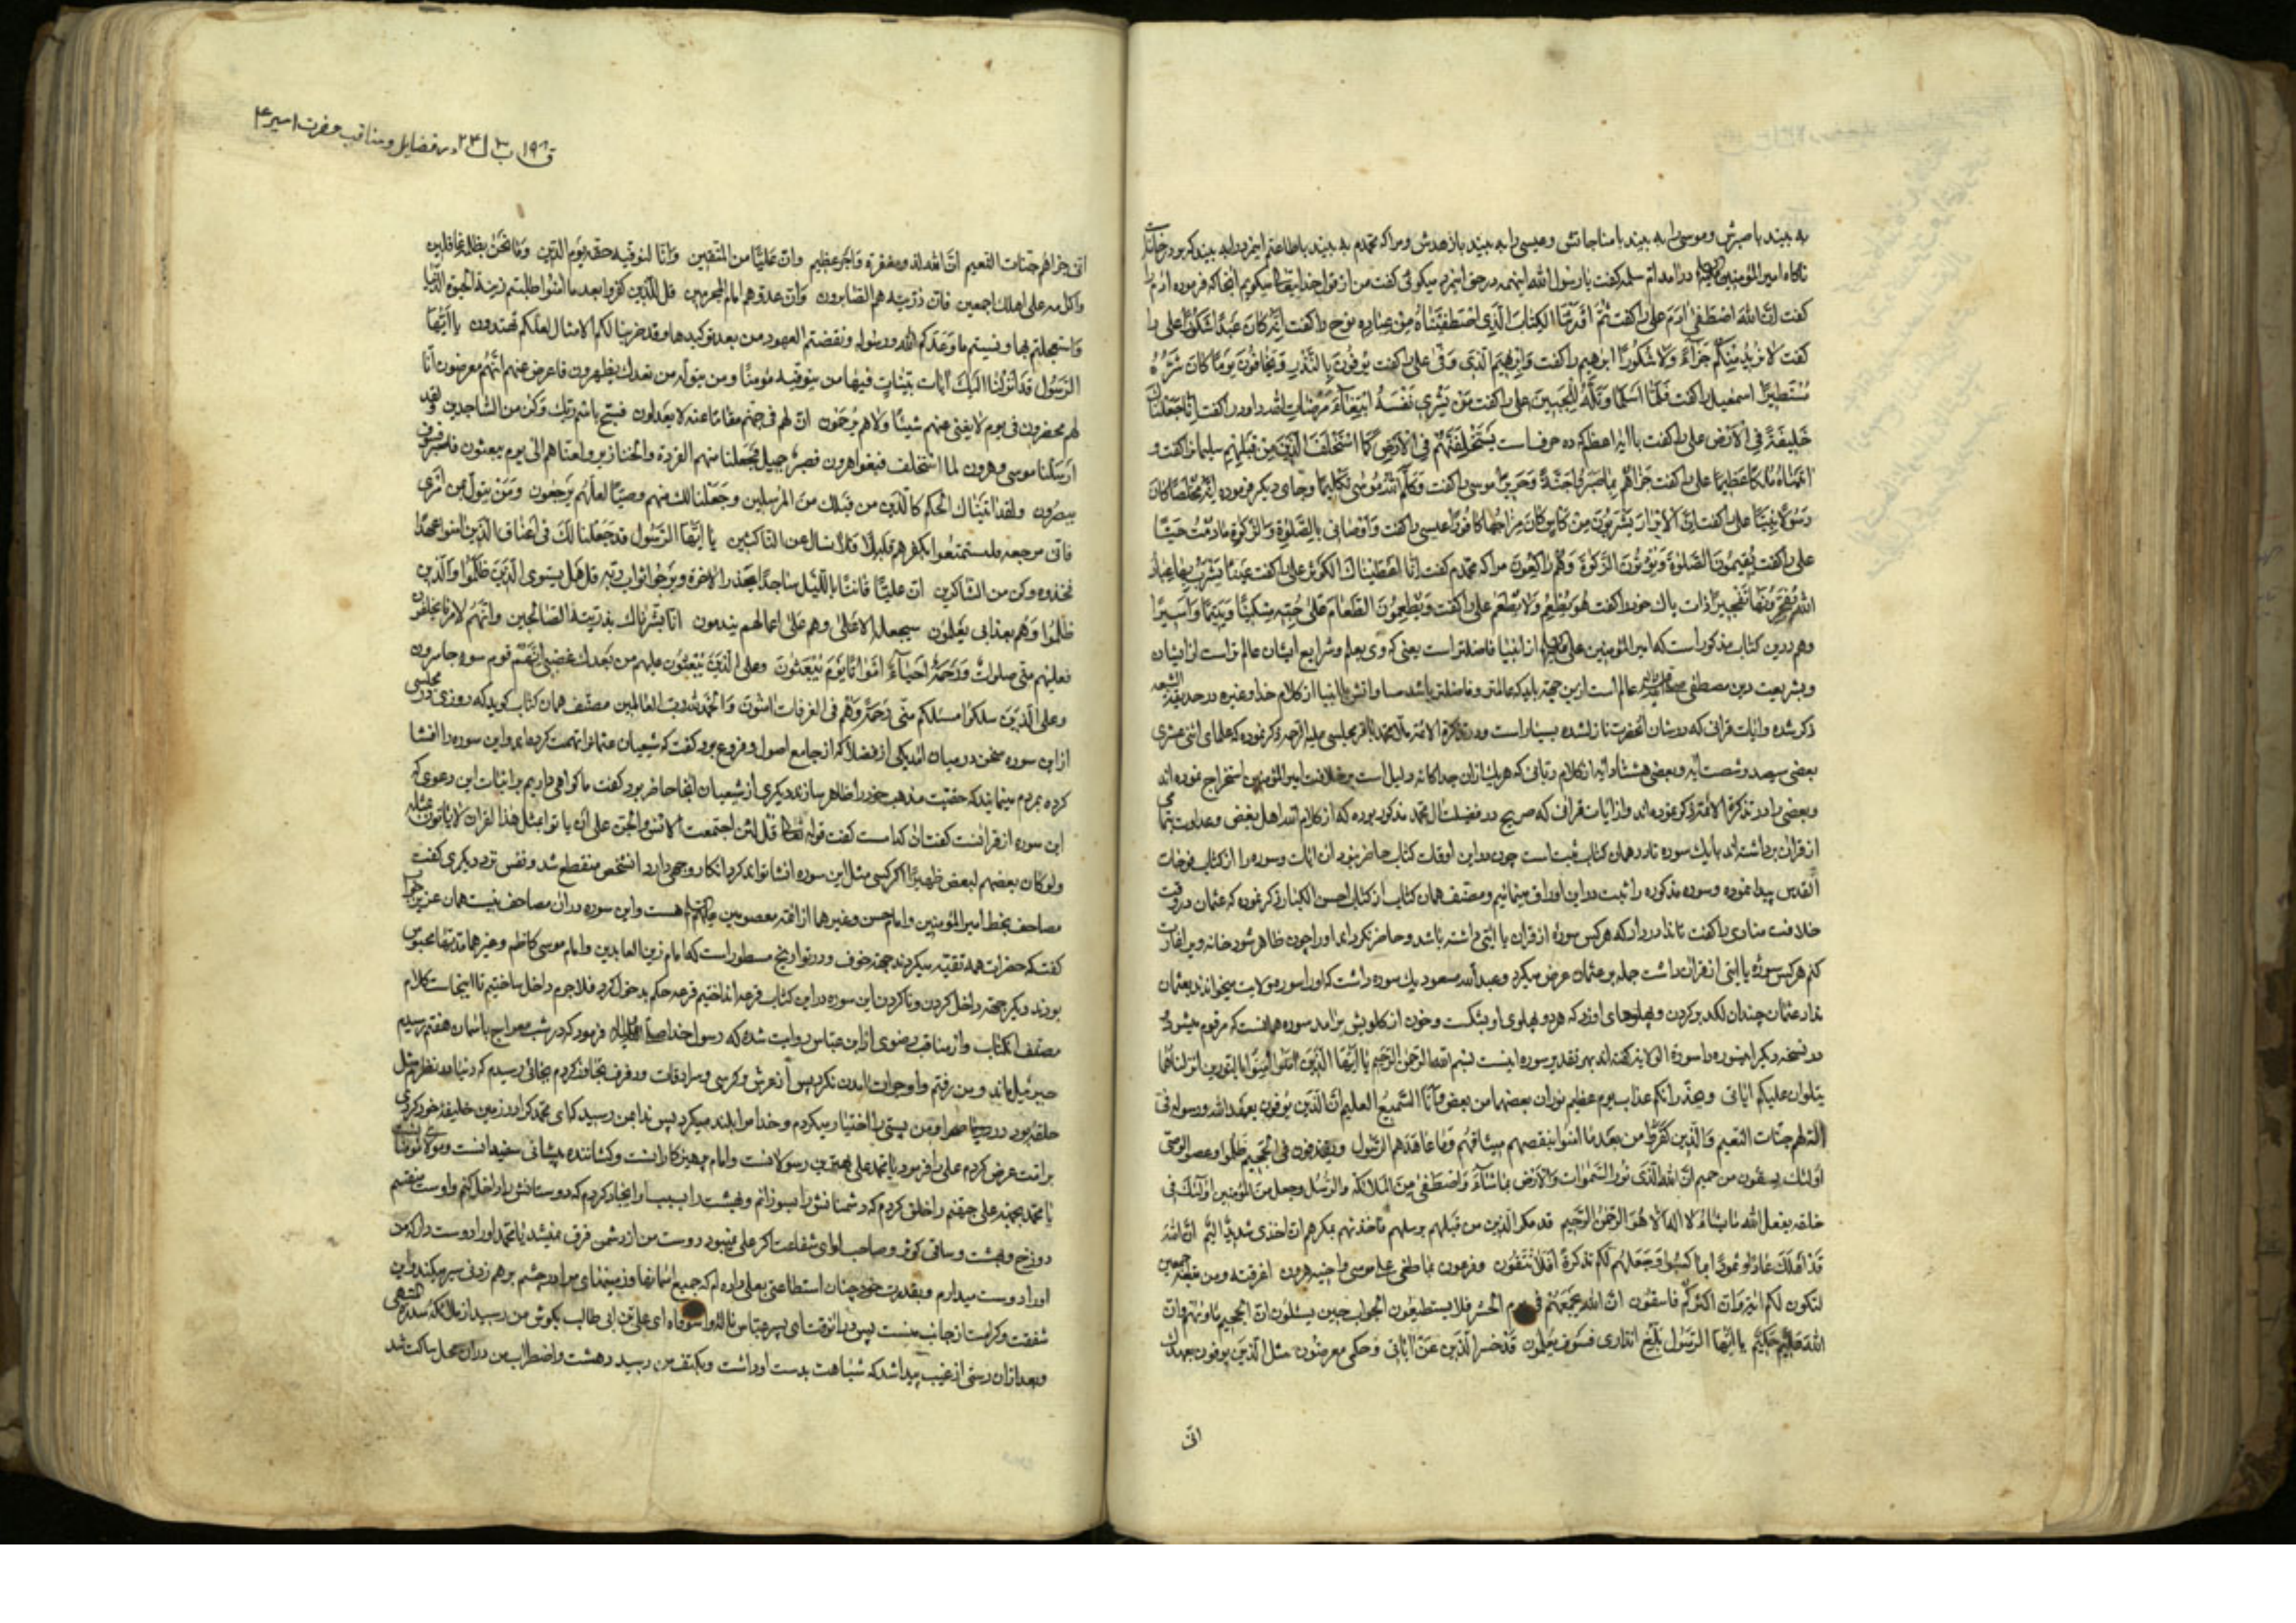 به بیند با صبرش و موسی را به بیند با مناجاتش و عیسی را به بیند با زهدش و مرا که محمدم به بیند با طاعتم اینمرد را به بیند که
ناکاه امیرالمؤمنین در آمد ام سلمه کفت یا رسول الله اینهمه در حق اینمرد میکوئی کفت من از قول خدایتعالی میکویم آنجا که فرموده
کفت ان الله اصطفی آدم علی را کفت ثم اورثنا الکتاب الذی اصطفیناه من عباده نوح را کفت انه کان عبدا شکورا علی را
کفت لا نرید منکم جزاء ولا شکورا ابرهیم را کفت وابرهیم الذی وفی علی را کفت یوفون بالنذر ویخافون یوما کان شره
مستطیرا اسمعیل را کفت فلما اسلما وتله للجبین علی را کفت من یشری نفسه ابتغاء مرضات الله داود را کفت انا جعلناک
خلیفة فی الارض علی را کفت لیستخلفنهم فی الارض کما استخلف الذین من قبلهم سلیمانرا کفت و
اتیناه ملکا عظیما علی را کفت جزاهم بما صبروا جنة وحریرا موسی را کفت وکلم الله موسی تکلیما و جای دیکر فرموده انه مخلصا کان
رسولا نبیا علی را کفت ان الابرار یشربون من کاس کان مزاجها کافورا عیسی را کفت واوصانی بالصلوة والزکوة ما دمت حیا
علی را کفت یقیمون الصلوة ویؤتون الزکوة وهم راکعون مرا که محمدم کفت انا اعطیناک الکوثر علی را کفت عینا یشرب بها عباد
الله یفجرونها تفجیرا ذات پاک خود را کفت هو یطعم ولا یطعم علی را کفت ویطعمون الطعام علی حبه مسکینا ویتیما واسیرا
وهم درین کتاب مذکور است که امیرالمؤمنین علی از انبیا فاضلتر است یعنی که وی بعلم و شرایع ایشان عالم تر است از ایشان
و بشریعت دین مصطفی عالم است ازین جهة باید که عالمتر و فاضلتر باشد
ذکر شده و آیات قرانی که در شان آنحضرت نازلشده بسیار است و در تذکرة الائمه ملا محمد باقر مجلسی علیه الرحمه ذکر نموده که علمای اثنی عشری
بعضی سیصد و شصت آیه و بعضی هشتاد آیه از کلام ربانی که هر یک از ان جدا کانه دلیل است بر خلافت امیرالمؤمنین استخراج نموده اند
و بعضی را در تذکرة الائمه ذکر نموده اند و از آیات قرانی که صریح در فضیلت آل محمد مذکور بوده که از کلام الله اهل بغض و عداوت
از قران برداشته اند با یک سوره تا در همان کتاب ثبت است چون در این اوقات کتاب حاضر نبود آن آیات و سوره را از کتاب فوحات
القدس پیدا نموده و سوره مذکوره را ثبت در این اوراق مینمائیم و مصنف همان کتاب از کتاب احسن الکبار ذکر نموده که عثمان در وقت
خلافت منادی را کفت تا ندا در داد که هر کس سورهٔ از قران یا آیتی داشته باشد و حاضر نکرداند او را چون ظاهر شود خانهٔ ویرا غارت
کنم هر کس سورهٔ یا آیتی از قران داشت جمله بر عثمان عرض میکرد و عبدالله مسعود یک سوره داشت که او را سوره ولایت میخواندند بعثمان
نداد عثمان چندان لکد بر کردن و پهلوهای او زد که هر دو پهلوی او بشکست و خون از کلویش بر آمد سوره همانست که مرقوم میشود
بسم الله الرحمن الرحیم یا ایها الذین آمنوا آمنوا بالنورین انزلناهما
یتلوان علیکم آیاتی ویحذرانکم عذاب یوم عظیم نوران بعضهما من بعض وانا السمیع العلیم ان الذین یوفون بعهد الله ورسوله فی
لهم جنات النعیم والذین کفروا من بعد ما آمنوا بنقضهم میثاقهم وما عاهدهم الرسول ویقذفون فی الجحیم ظلموا وعصوا لوصی
اولئک یسقون من حمیم ان الله الذی نور السموات والارض بما شاء واصطفی من الملائکه والرسل وجعل من المؤمنین اولئک فی
خلقه یفعل الله ما یشاء لا اله الا هو الرحمن الرحیم قد مکر الذین من قبلهم برسلهم فاخذتهم بمکرهم ان اخذی شدید الیم ان الله
قد اهلک عادا وثمودا بما کسبوا وجعلهم لکم تذکرة افلا تتقون وفرعون بما طغی علی موسی واخیه هرون اغرقته ومن تبعه اجمعین
لتکون لکم آیة وان اکثرکم فاسقون ان الله یجمعهم فی یوم الحشر فلا یستطیعون الجواب حین یسئلون ان الجحیم ماویهم وان
الله علیم حکیم یا ایها الرسول بلغ انذاری فسوف یعلمون قد خسر الذین عن آیاتی وحکمی معرضون مثل الذین یوفون بعهدک
انی
ق ۱۹۸ ب ۳ ل ۲۴ در فضایل و مناقب حضرت امیر ع
انی جزاهم جنات النعیم ان الله لذو مغفرة واجر عظیم وان علیا من المتقین وانا لنوفیه حقه یوم الدین وما نحن بظلمه غافلین
وکرمه علی اهلک اجمعین فان ذریته هم الصابرون وان عدوهم امام المجرمین قل للذین کفروا بعد ما آمنوا طلبتم زینة الحیوة الدنیا
واستعجلتم بها ونسیتم ما وعدکم الله ورسوله ونقضتم العهود من بعد توکیدها وقد ضربنا لکم الامثال لعلکم تهتدون یا ایها
الرسول قد انزلنا الیک آیات بینات فیها من یتوفیه مؤمنا ومن یتوله من بعدک یظهرون فاعرض عنهم انهم معرضون انا
لهم محضرون فی یوم لا یغنی عنهم شیئا ولاهم یرحمون ان لهم فی جهنم مقاما عنه لا یعدلون فسبح باسم ربک وکن من الساجدین ولقد
ارسلنا موسی وهرون بما استخلف فبغوا هرون فصبر جمیل فجعلنا منهم القردة والخنازیر ولعناهم الی یوم یبعثون فاصبر فسوف
یبصرون ولقد آتیناک الحکم کالذین من قبلک من المرسلین وجعلنا لک منهم وصیا لعلهم یرجعون ومن یتول عن امری
فانی مرجعه فلیستمتعوا بکفرهم قلیلا فلا تسال عن الناکثین یا ایها الرسول قد جعلنا لک فی اعناق الذین آمنوا عهدا
فخذه وکن من الشاکرین ان علیا قانتا باللیل ساجدا یحذر الاخرة ویرجوا ثواب ربه قل هل یستوی الذین ظلموا والذین
ظلموا وهم بعذابی یعلمون سیجعل الاغلال وهم علی اعمالهم یندمون انا بشرناک بذریته الصالحین وانهم لامرنا یخلفون
فعلیهم منی صلوات ورحمة احیاء امواتا یوم یبعثون وعلی الذین یبغون علیهم من بعدک غضبی انهم قوم سوء خاسرون
وعلی الذین سلکوا مسلکهم منی رحمة وهم فی الغرفات آمنون والحمد لله رب العالمین مصنف همان کتاب کوید که روزی در مجلسی
از این سوره سخن در میان آمد یکی از فضلا که از جامع اصول و فروع بود کفت که شیعیان عثمانرا تهمت کرده اند و این سوره را افشا
کرده بمردم مینمایند که حقیت مذهب خود را ظاهر سازند دیکری از شیعیان آنجا حاضر بود کفت ما کواهی داریم بر اثبات این دعوی که
این سوره از قرانست کفت آن کدامست کفت قوله تعالی قل لئن اجتمعت الانس والجن علی ان یاتوا بمثل هذا القران لا یاتون بمثله
ولو کان بعضهم لبعض ظهیرا اکر کسی مثل این سوره انشا تواند کرد انکار وجهی دارد آنشخص منقطع شد و نفس نزد دیکری کفت
مصاحف بخط امیرالمؤمنین و امام حسن و غیرها از ائمه معصومین هست و این سوره در آن مصاحف نیست همان عزیز جواب
کفت که حضرات همه تقیه میکردند جهة خوف و در تواریخ مسطور است که امام زین العابدین و امام موسی کاظم و غیرهما مدتها محبوس
بودند دیکر بجهة داخل کردن و نا کردن این سوره در این کتاب قرعه انداختیم قرعه حکم بدخول کرد فلاجرم داخل ساختیم تا اینجاست کلام
مصنف آنکتاب و از مناقب رضوی از ابن عباس روایت شده که رسول خدا فرمود که در شب معراج باسمان هفتم رسیدم
جبرئیل بماند و من رفتم و او جرات آمدن نکرد پس از عرش و کرسی و سرادقات و رفرف تجاوز کردم بجائی رسیدم که دنیا در نظرم مثل
حلقه بود در و من پستی را اختیار میکردم و خدا مرا بلند میکرد پس ندا بمن رسید که ای محمد کرا در زمین خلیفهٔ خود کردی
عرض کردم علی را فرمود یا محمد علی رسولانست و امام پرهیزکارانست و کشاننده پیشانی سفیدانست
یا محمد بجهة علی جهنم را خلق کردم که دشمنانش را بسوزانم و بهشت را بسبب او ایجاد کردم که دوستانش را داخل کنم و اوست منقسم
دوزخ و بهشت و ساقی کوثر و صاحب لوای شفاعت اکر علی نمیبود دوست من از دشمن فرق نمیشد یا محمد او را دوست دار که من
او را دوست میدارم و بقدرت خود چنان استطاعتی بعلی داده ام که جمیع آسمانها و زمینهای مرا در چشم بر هم زدنی سیر میکند و این
شفقت و کرامت از جانب منست پس در آنوقت ای پسر عباس ای علی بن ابی طالب بکوش من رسید از ملائکهٔ سدرة المنتهی
و بعد از آن دستی از غیب پیدا شد که شباهت بدست او داشت و بکتف من رسید دهشت و اضطراب من در آن محل ساکت شد